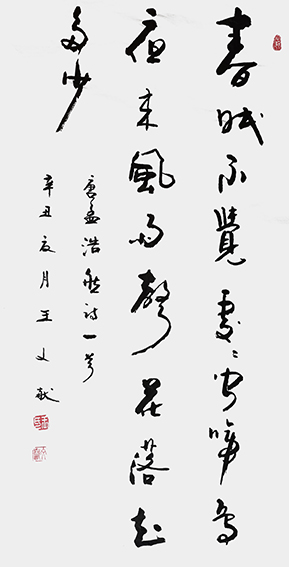 春眠不覺處處聞啼鳥
夜来風雨聲花落知
多少
唐孟浩然诗一首
辛丑夏月王文献